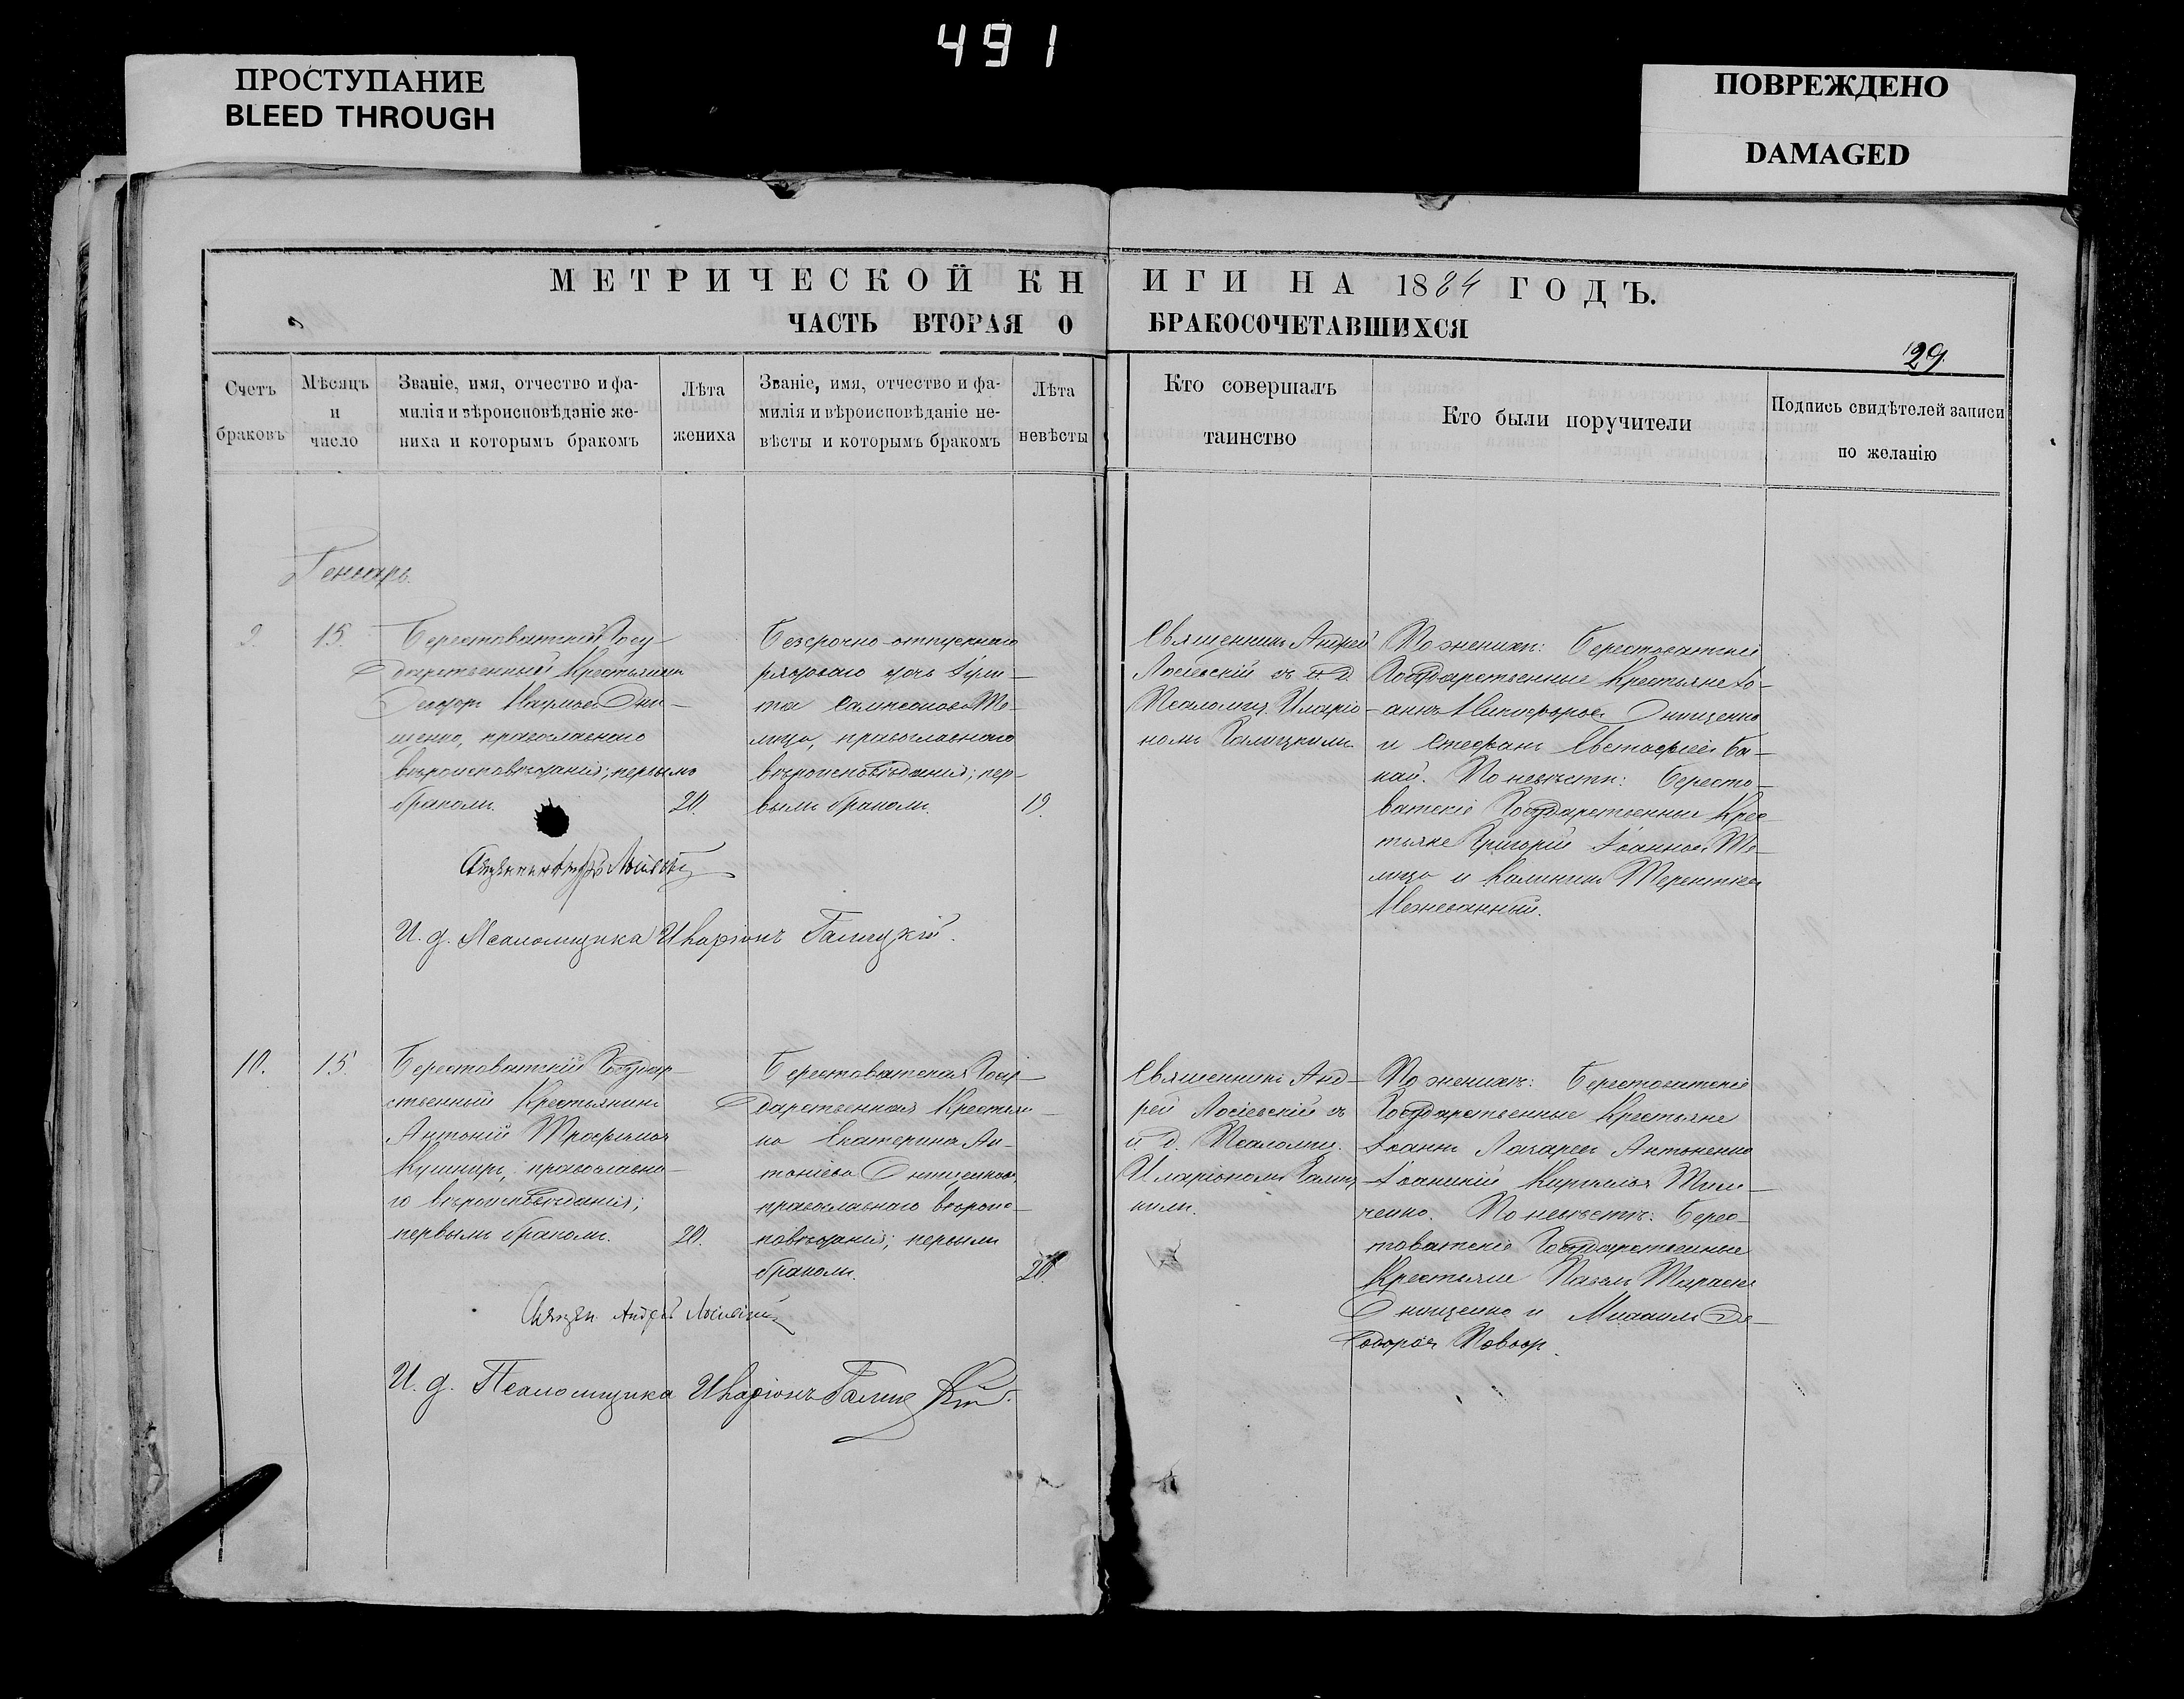 491
ПРОСТУПАНИЕ
BLEED THROUGH
ПОВРЕЖДЕНО
DAMAGED
МЕТРИЧЕСКОЙ КНИГИ НА 1884 ГОДЪ.
ЧАСТЬ ВТОРАЯ О БРАКОСОЧЕТАВШИХСЯ
29.
Счетъ
браковъ
Мѣсяцъ
и
число
Званіе, имя, отчество и фа-
милія и вѣроисповѣданіе же-
ниха и которымъ бракомъ
Лѣта
жениха
Званіе, имя, отчество и фа-
милія и вѣроисповѣданіе не-
вѣсты и которымъ бракомъ
Лѣта
невѣсты
Кто совершалъ
таинство
Кто были поручители
Подпись свидѣтелей записи
по желанію
Генварь.
9.
15.
Берестоватскій Госу-
дарственный Крестьянинъ
Наумовъ Они-
щенко, православнаго
вѣроисповѣданія; первымъ
бракомъ.
20.
Безсрочно-отпускнаго
рядоваго дочь
православнаго
вѣроисповѣданія; пер-
вымъ бракомъ.
19.
Священникъ Андрей
Лосіевскій съ и. д.
Псаломщ. Иларіо-
номъ Галицкимъ.
По женихѣ: Берестоватскіе
Государственные Крестьяне Іо-
аннъ Никифоровъ Онищенко
и Стефанъ Евстафіевъ Ба-
кай. По невѣстѣ: Бересто-
ватскіе Государственные Крес-
тьяне Григорій Іоанновъ
и Калинникъ Терентіевъ
Священникъ Андрей Лосіевскій
И. д. Псаломщика Иларіонъ Галицкій.
10.
15.
Берестоватскій Государ-
ственный Крестьянинъ
Антоній Трофимовъ
Кушниръ, православна-
го вѣроисповѣданія;
первымъ бракомъ.
20.
Берестоватская Госу-
дарственная Крестьян-
ка Екатерина Ан-
тоніева Онищенкова,
православнаго вѣроис-
повѣданія; первымъ
бракомъ.
20.
Священникъ Анд-
рей Лосіевскій съ
и. д. Псаломщ.
Иларіономъ Галиц-
кимъ.
По женихѣ: Берестоватскіе
Государственные Крестьяне
Іоаннъ Лазаревъ Антоненко
Іоанникій Кирилловъ
ченко. По невѣстѣ: Берес-
товатскіе Государственные
Крестьяне Павелъ Тарасіевъ
Онищенко и Михаилъ Ѳе-
одоровъ
Священ. Андрей Лосіевскій
И. д. Псаломщика Иларіонъ Галицкій.